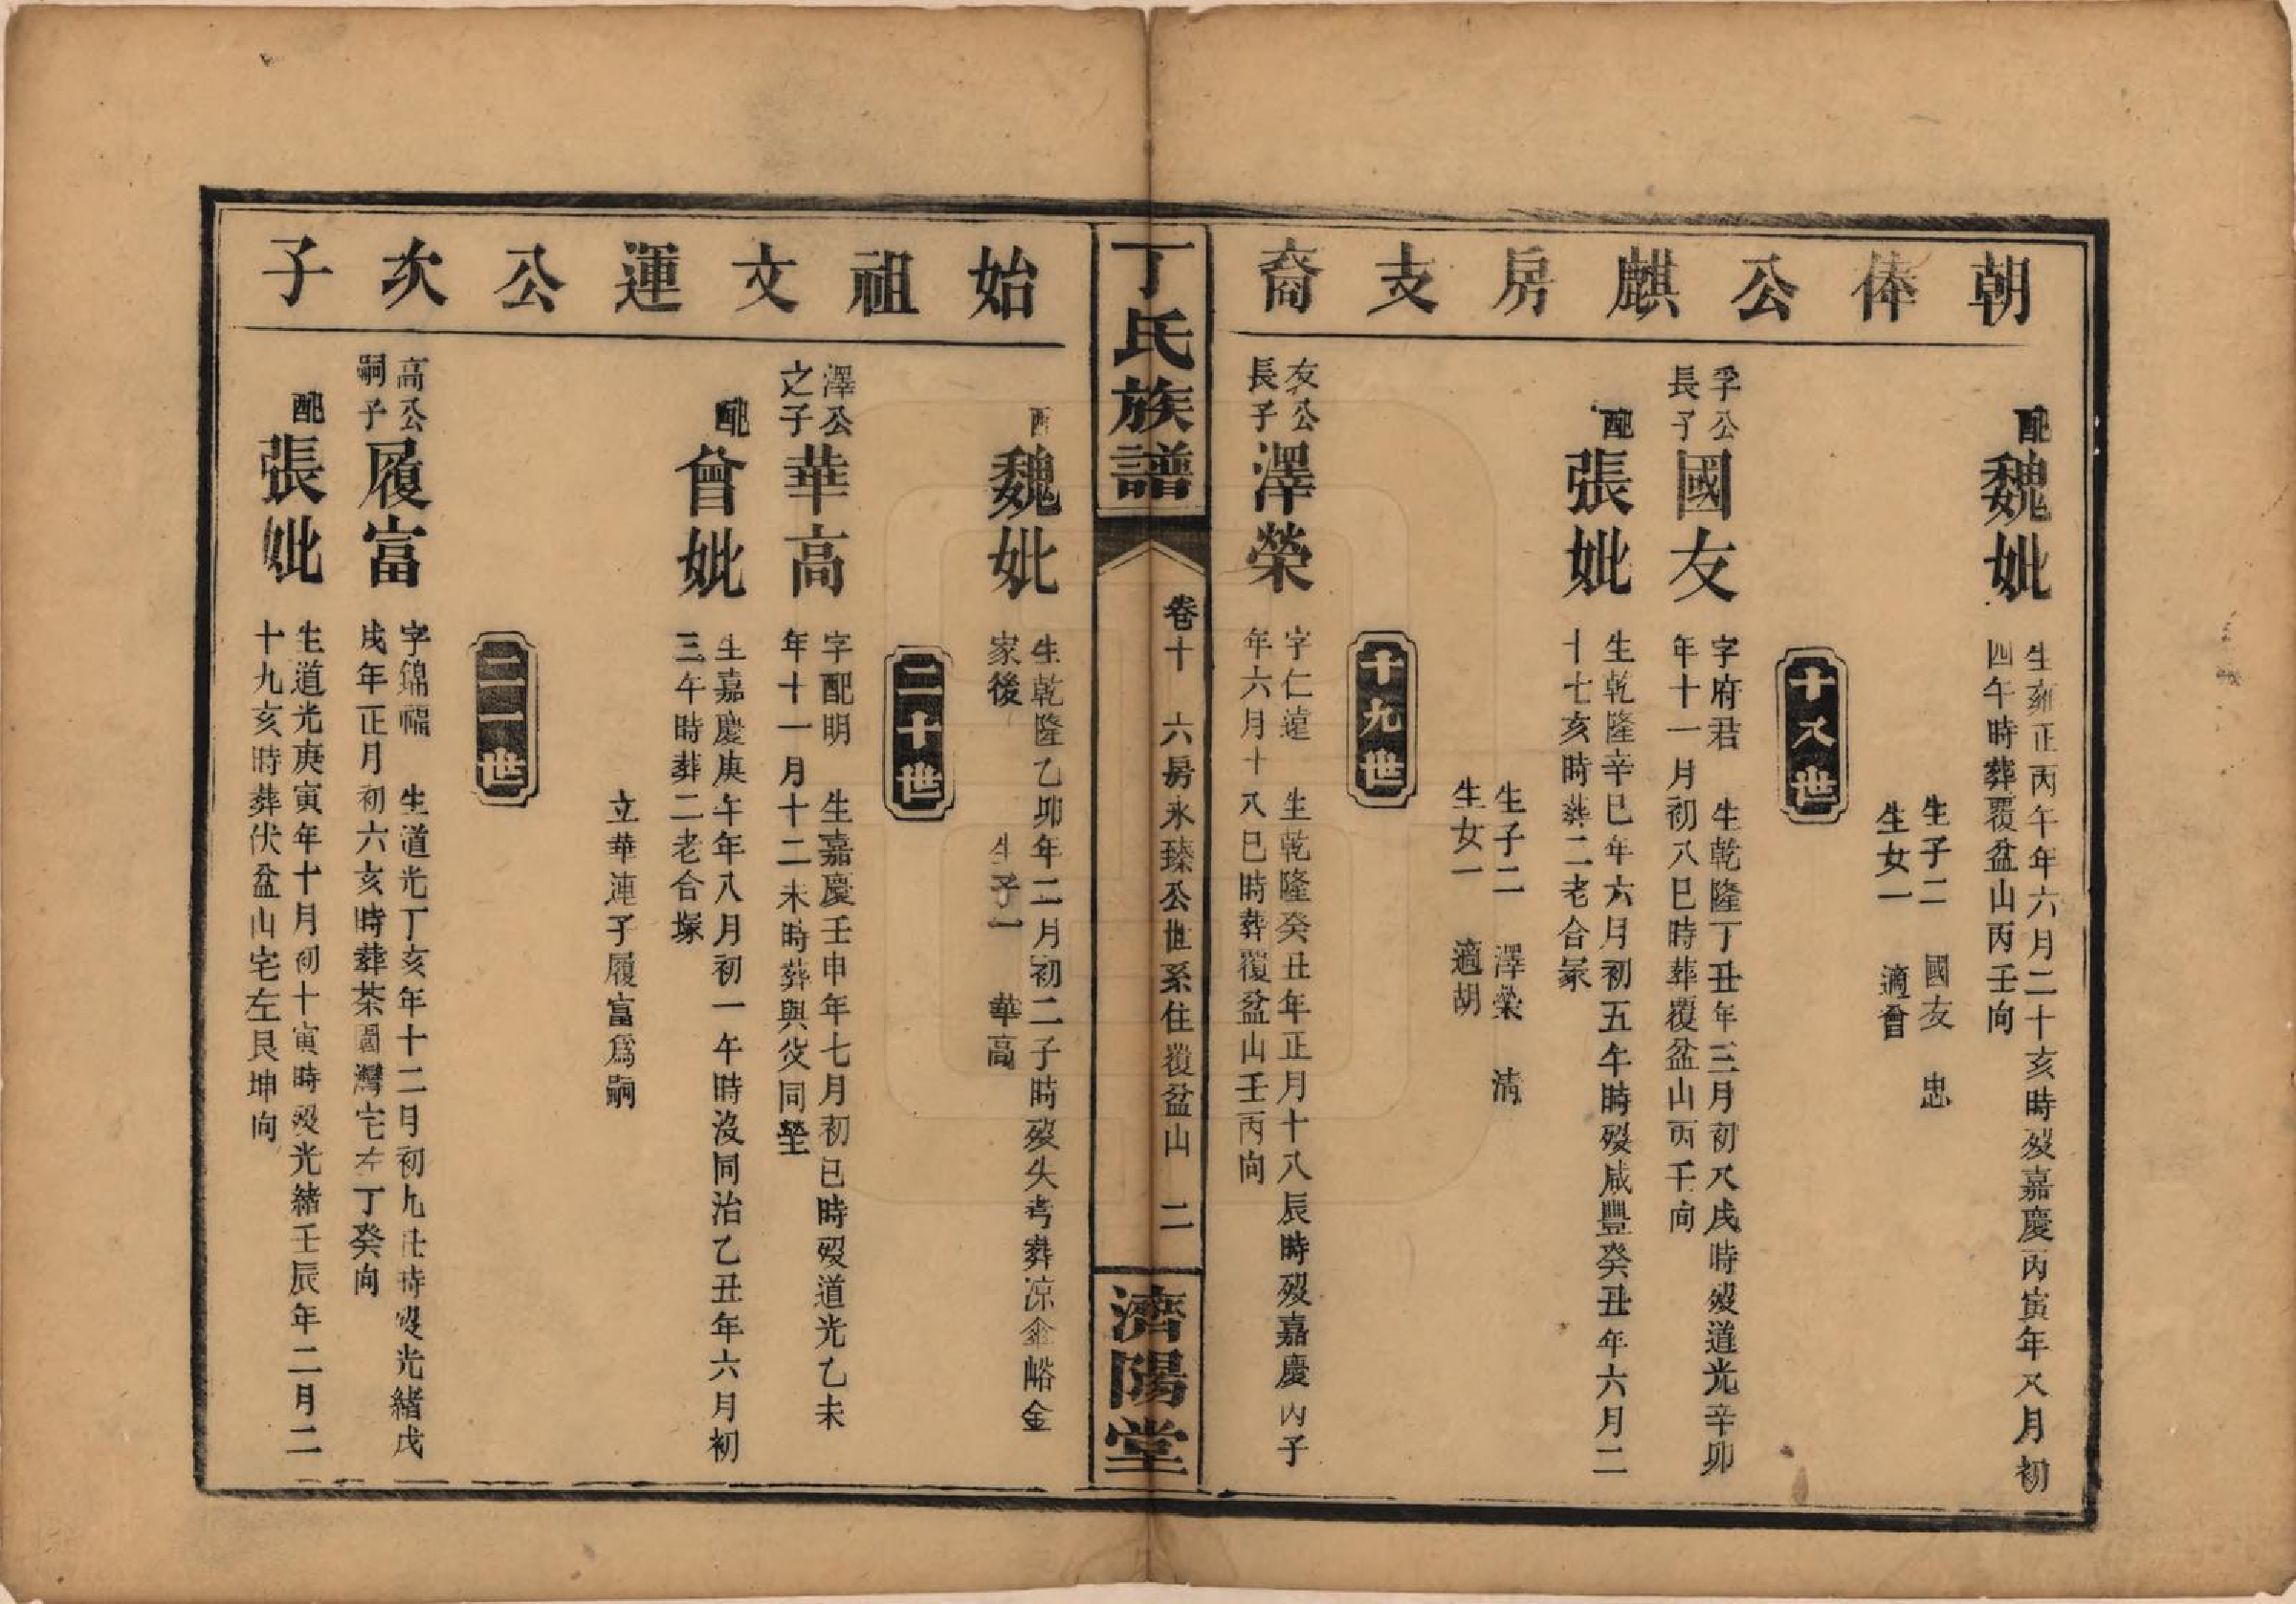 朝俸公麒房支裔
配魏妣
生雍正丙午年六月二十亥時歿嘉慶丙寅年又月初
四午時葬覆盆山丙壬向
生子二 國友 忠
生女一 適曾
十八世
孚公
長子
國友
字府君 生乾隆丁丑年三月初八戌時歿道光辛卯
年十一月初八巳時葬覆盆山丙壬向
配張妣
生乾隆辛巳年六月初五午時歿咸豐癸丑年六月二
十七亥時葬二老合冢
生子二 澤榮 清
生女一 適胡
十九世
友公
長子
澤榮
字仁遠 生乾隆癸丑年正月十八辰時歿嘉慶丙子
年六月十八巳時葬覆盆山壬丙向
丁氏族譜
卷十 六房永臻公世系住覆盆山 二
濟陽堂
始祖文運公次子
配魏妣
生乾隆乙卯年二月初二子時歿失考葬凉傘峪金
家後
生子一 華高
二十世
澤公
之子
華高
字配明 生嘉慶壬申年七月初巳時歿道光乙未
年十一月十二未時葬與父同塋
配曾妣
生嘉慶庚午年八月初一午時沒同治乙丑年六月初
三午時葬二老合塚
立華連子履富爲嗣
二一世
高公
嗣子
履富
字錦福 生道光丁亥年十二月初九丑時歿光緒戊
戌年正月初六亥時葬茶園灣宅左丁癸向
配張妣
生道光庚寅年十月初十寅時歿光緒壬辰年二月二
十九亥時葬伏盆山宅左艮坤向